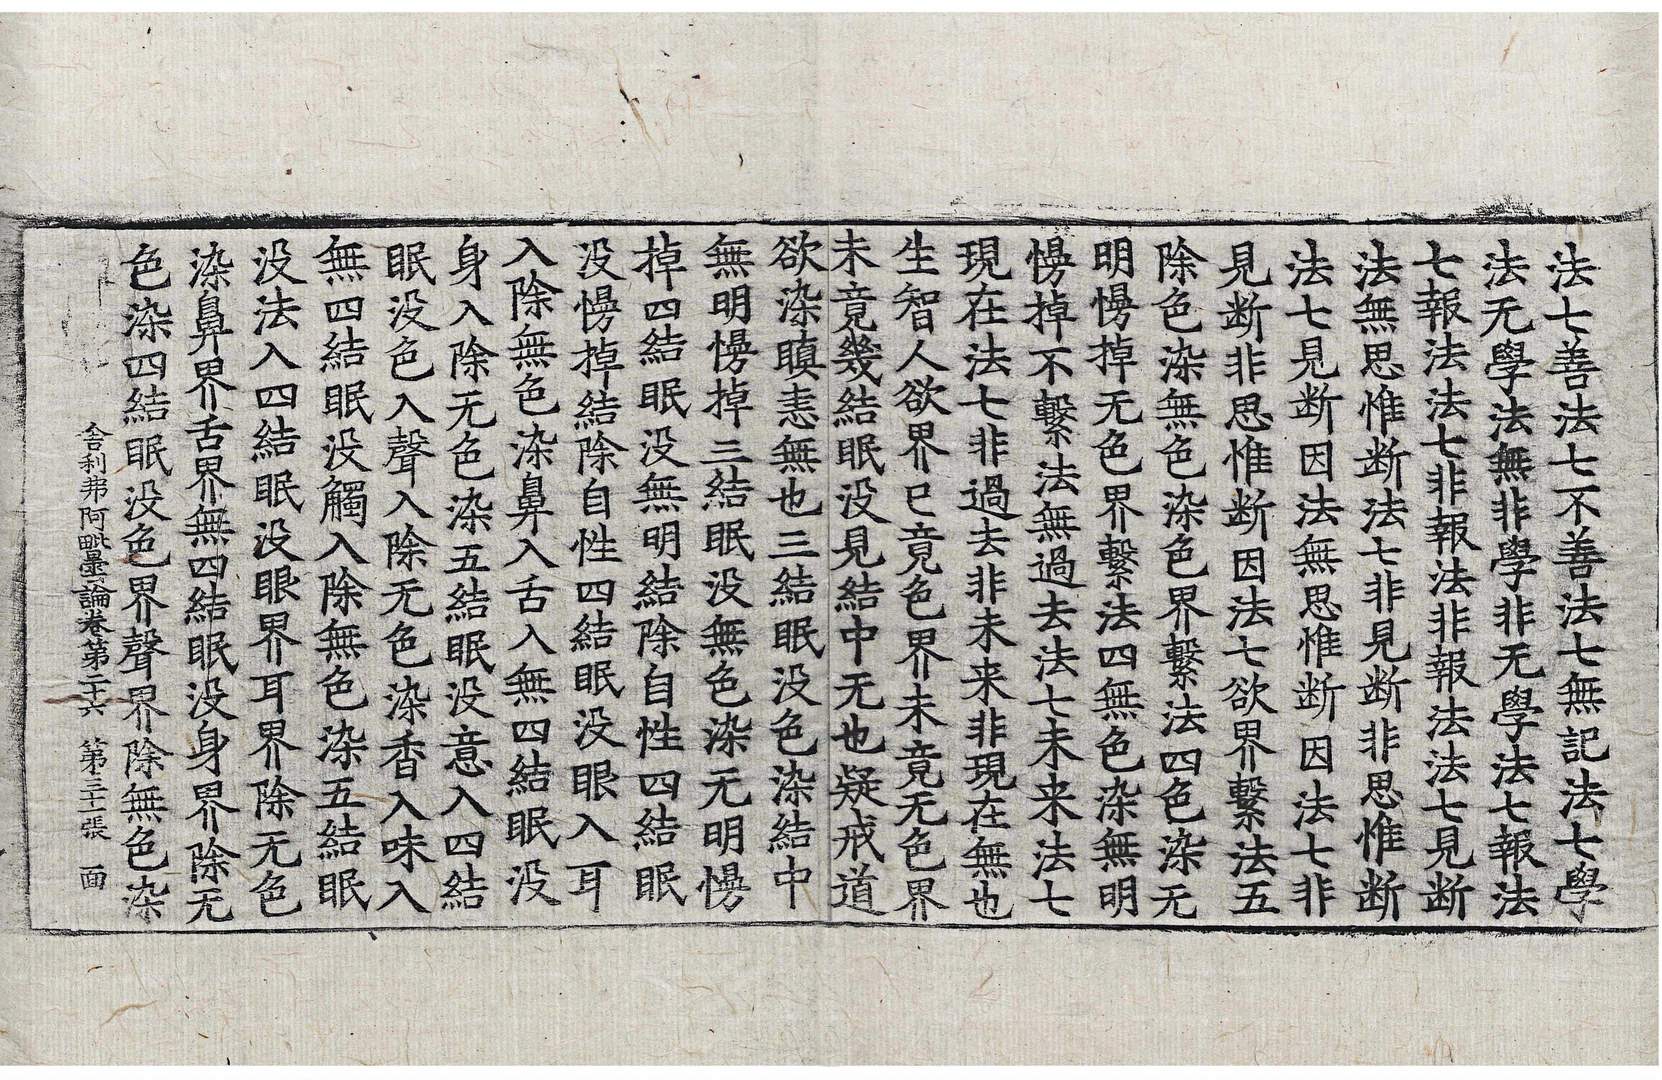 法七善法七不善法七無記法七學
法无學法無非學非无學法七報法
七報法法七非報法非報法法七見断
法無思惟断法七非見断非思惟断
法七見断因法無思惟断因法七非
見断非思惟断因法七欲界繫法五
除色染無色染色界繫法四色染无
明慢掉无色界繫法四無色染無明
慢掉不繫法無過去法七未来法七
現在法七非過去非未来非現在無也
生智人欲界已竟色界未竟无色界
未竟幾結眠没見結中无也疑戒道
欲染瞋恚無也三結眠没色染結中
無明慢掉三結眠没無色染无明慢
掉四結眠没無明結除自性四結眠
没慢掉結除自性四結眠没眼入耳
入除無色染鼻入舌入無四結眠没
身入除无色染五結眠没意入四結
眠没色入聲入除无色染香入味入
無四結眠没觸入除無色染五結眠
没法入四結眠没眼界耳界除无色
染鼻界舌界無四結眠没身界除无
色染四結眠没色界聲界除無色染
舎利弗阿毗曇論卷第二十六 第三十一張 面